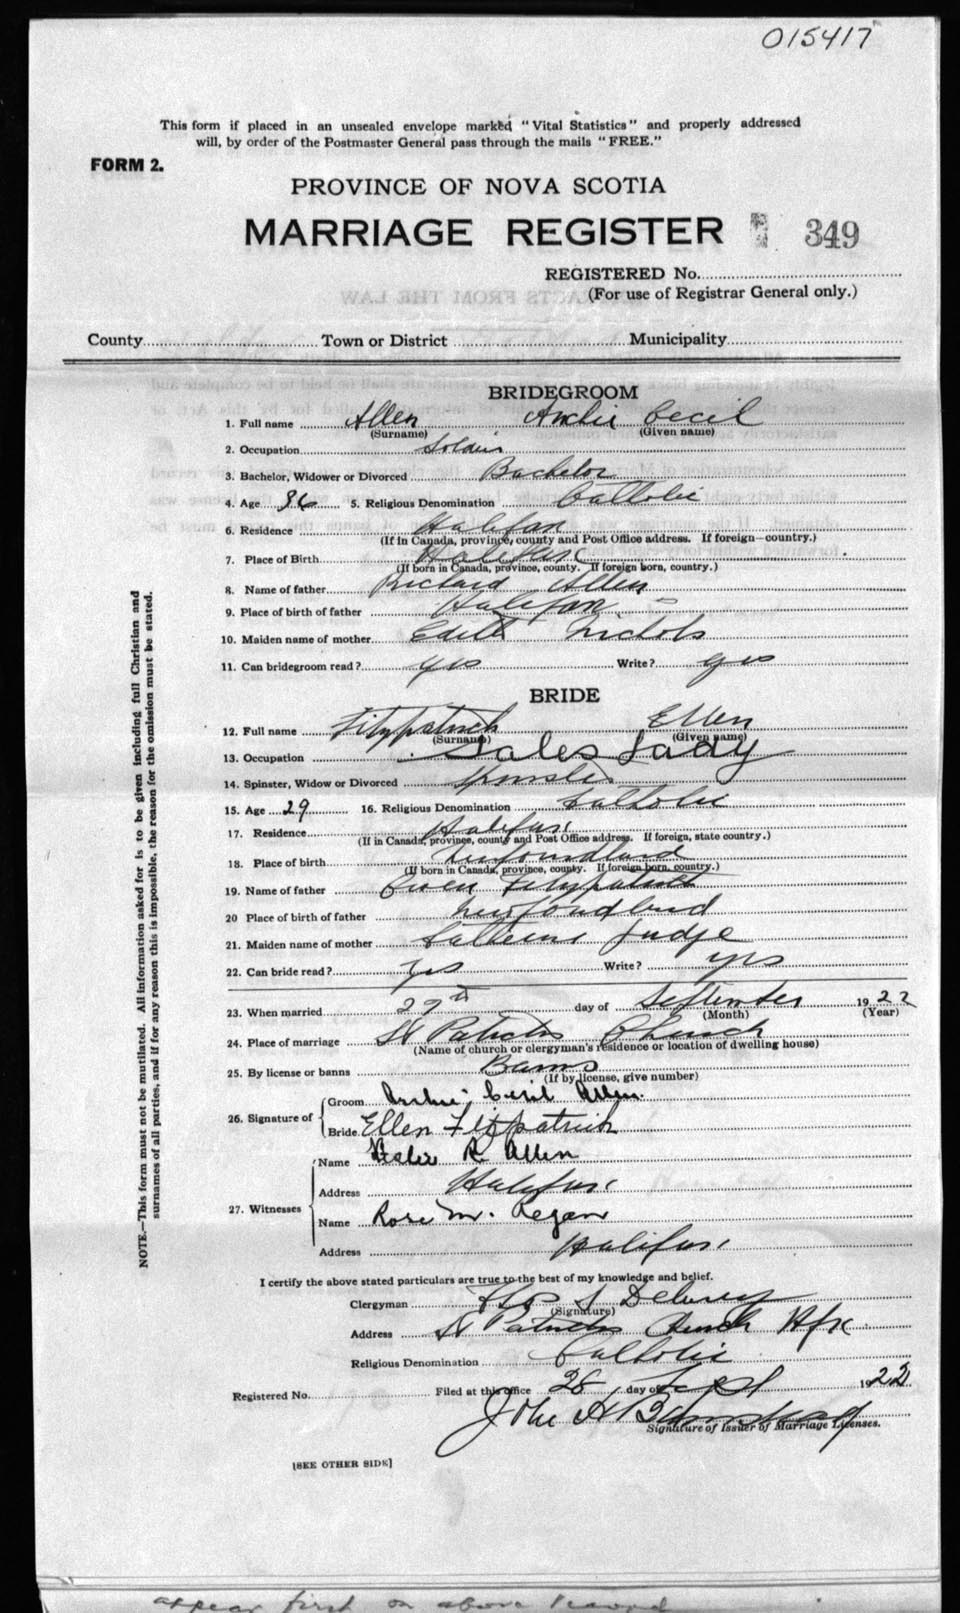 015417
This form if placed in an unsealed envelope marked "Vital Statistics" and properly addressed
will, by order of the Postmaster General pass through the mails "FREE."
FORM 2.
PROVINCE OF NOVA SCOTIA
MARRIAGE REGISTER 349
REGISTERED No.
(For use of Registrar General only.)
County Town or District Municipality
BRIDEGROOM
1. Full name Allen Archie Cecil
(Surname) (Given name)
2. Occupation Soldier
3. Bachelor, Widower or Divorced Bachelor
4. Age 36 5. Religious Denomination Catholic
6. Residence Halifax
(If in Canada, province, county and Post Office address. If foreign—country.)
7. Place of Birth Halifax
(If born in Canada, province, county. If foreign born, country.)
8. Name of father Richard Allen
9. Place of birth of father Halifax
10. Maiden name of mother Edith Nichols
11. Can bridegroom read? yes Write? yes
BRIDE
12. Full name Fitzpatrick Ellen
(Surname) (Given name)
13. Occupation Sales Lady
14. Spinster, Widow or Divorced Spinster
15. Age 29 16. Religious Denomination Catholic
17. Residence Halifax
(If in Canada, province, county and Post Office address. If foreign, state country.)
18. Place of birth Newfoundland
(If born in Canada, province, county. If foreign born, country.)
19. Name of father Owen Fitzpatrick
20 Place of birth of father Newfoundland
21. Maiden name of mother Catherine Judge
22. Can bride read? yes Write? yes
23. When married 27th day of September 1922
(Month) (Year)
24. Place of marriage St Patricks Church
(Name of church or clergyman's residence or location of dwelling house)
25. By license or banns Banns
(If by license, give number)
26. Signature of Groom Archie Cecil Allen.
Bride Ellen Fitzpatrick
27. Witnesses
Name R. Allen
Address Halifax
Name Rose M. Regan
Address Halifax
I certify the above stated particulars are true to the best of my knowledge and belief.
Clergyman
(Signature)
Address St Patricks Church Hfx
Religious Denomination Catholic
Registered No. Filed at this office 28 day of Sept 1922
John A
Signature of Issuer of Marriage Licenses.
[SEE OTHER SIDE]
NOTE.—This form must not be mutilated. All information asked for is to be given including full Christian and
surnames of all parties, and if for any reason this is impossible, the reason for the omission must be stated.
appear first on above record